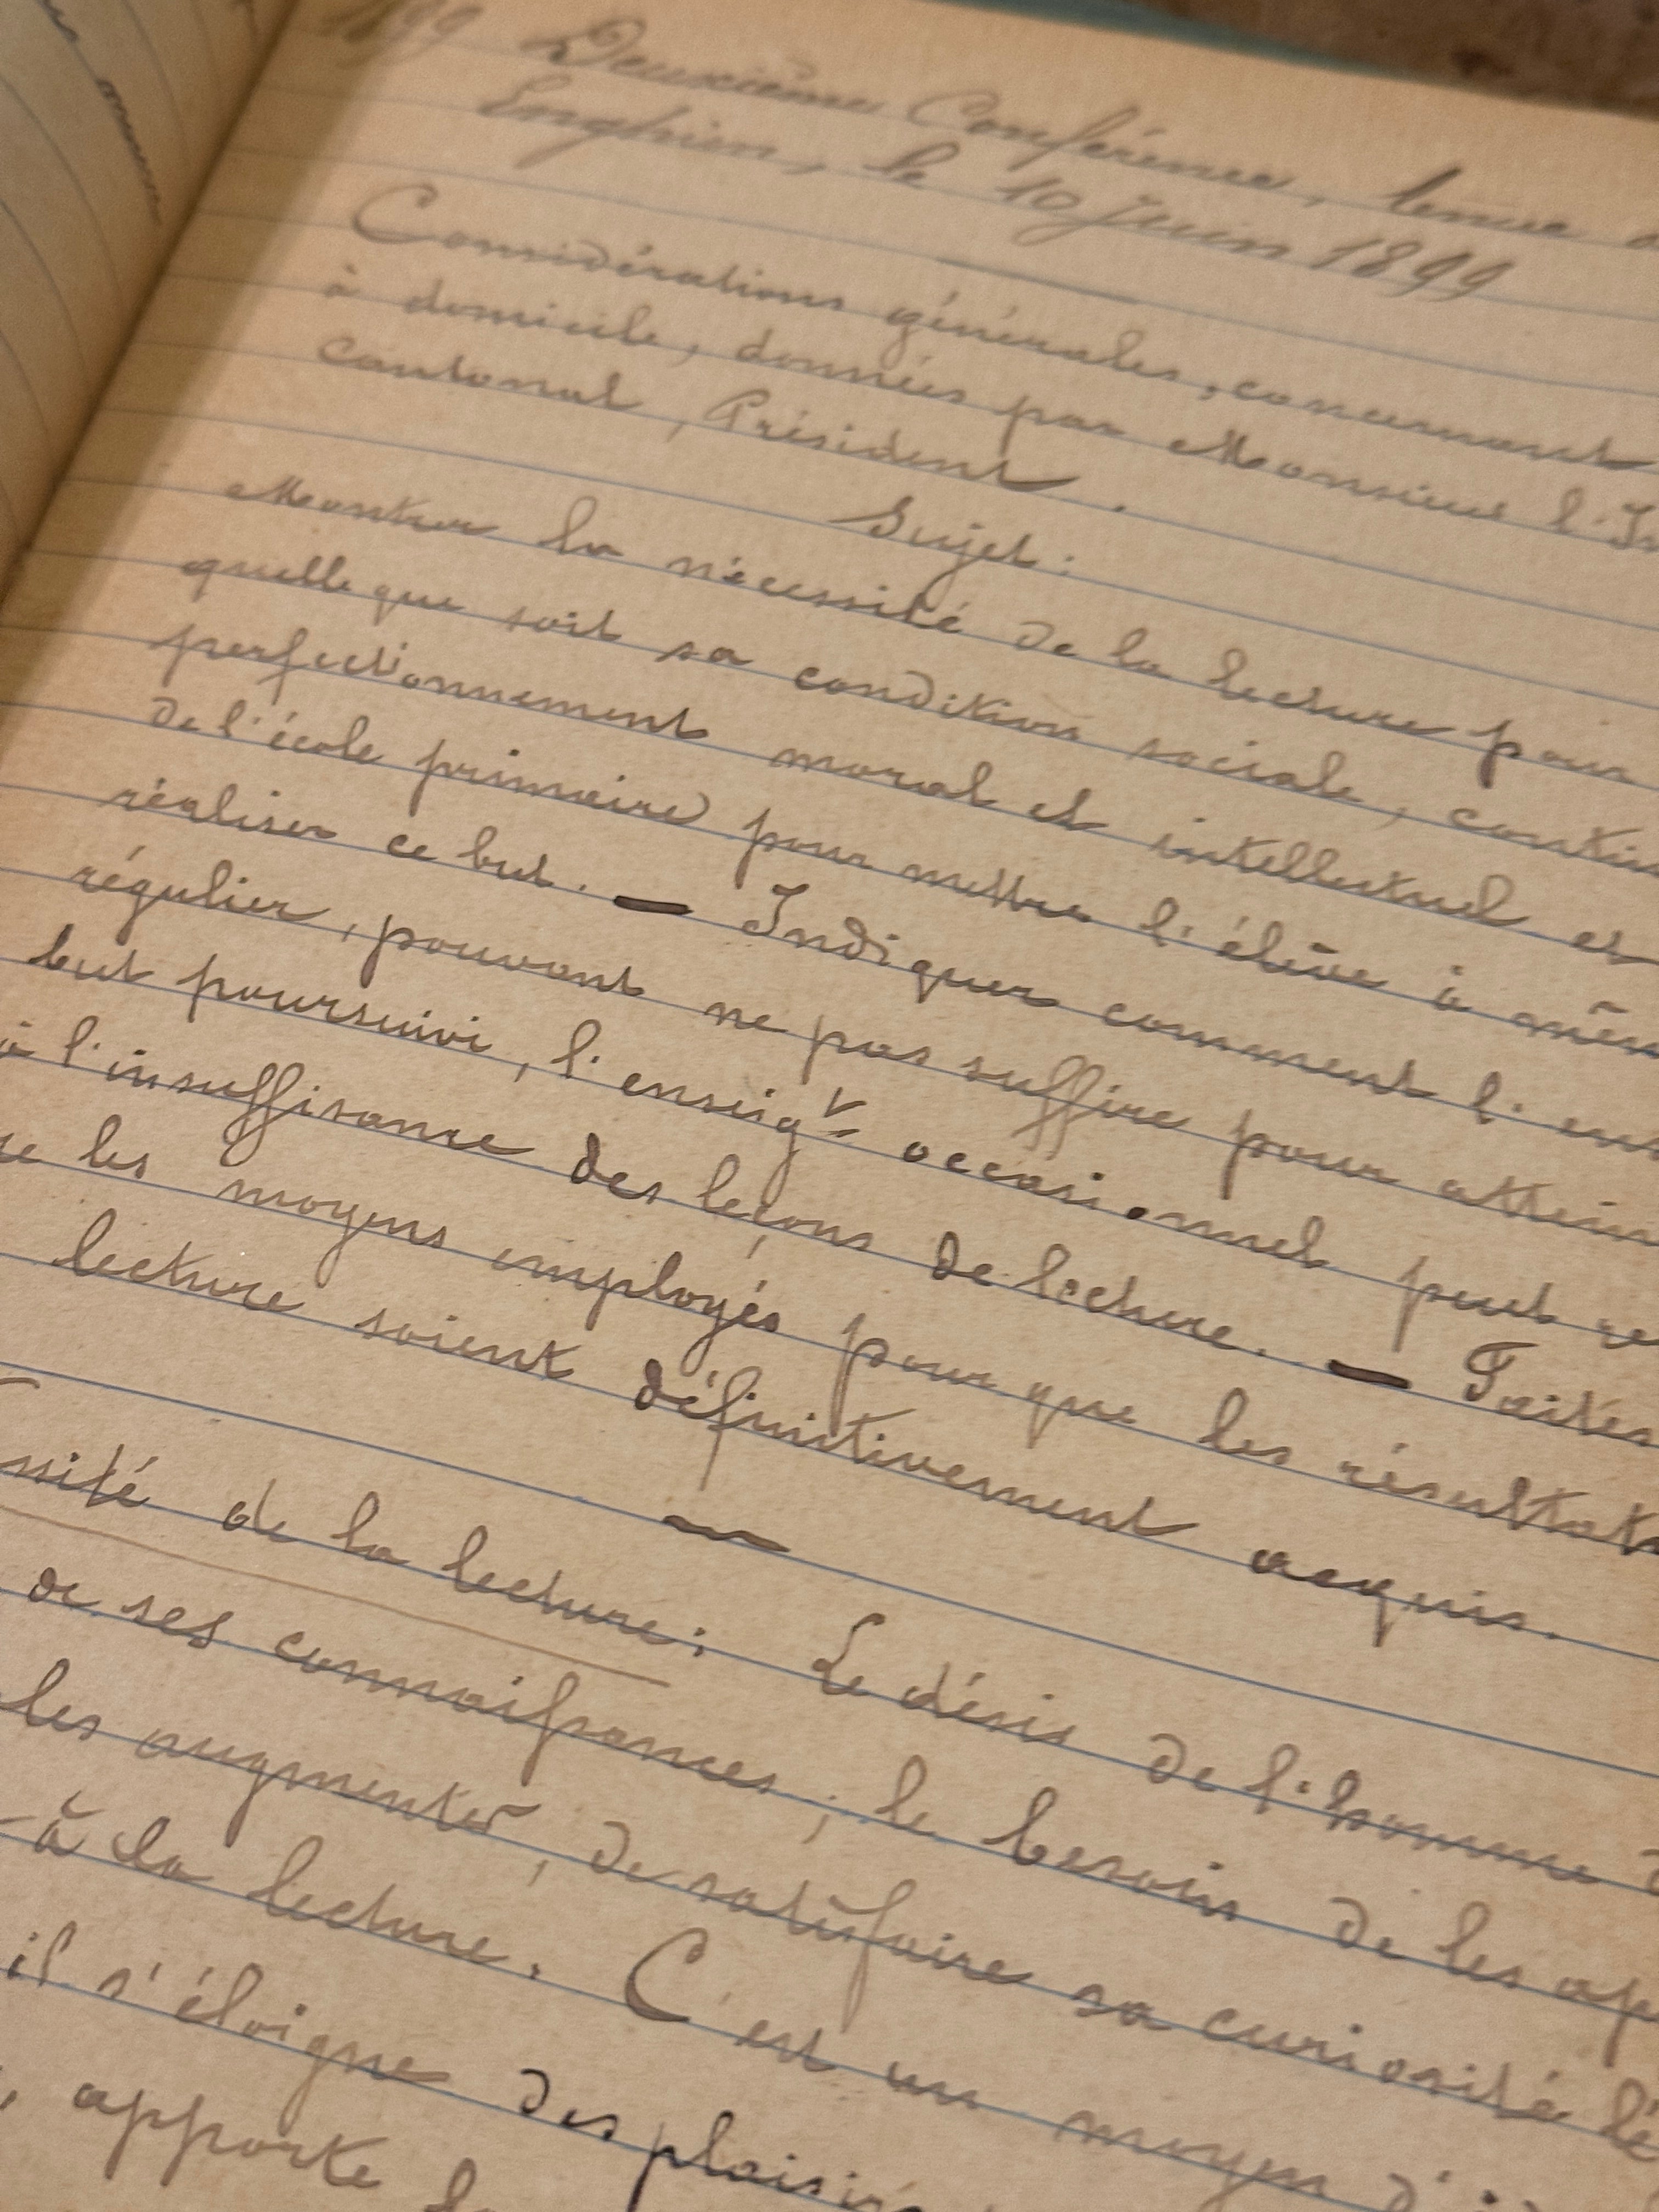 1899 Deuxième Conférence, tenue
Enghien, le 10 Juin 1899
Considérations générales, concernant
à domicile, données par Monsieur l'In
cantonal, Président.
Sujet:
Montrer la nécessité de la lecture pour
quelle que soit sa condition sociale, contin
perfectionnement moral et intellectuel et
de l'école primaire pour mettre l'élève à mêm
réaliser ce but. — Indiquer comment l'ens
régulier, pouvant ne pas suffire pour attein
but poursuivi, l'enseigt occasionnel peut re
à l'insuffisance des leçons de lecture. — Faites
re les moyens employés pour que les résultats
lecture soient définitivement acquis.
—
ssité de la lecture: Le désir de l'homme d
de ses connaissances; le besoin de les ap
les augmenter, de satisfaire sa curiosité l'é
à la lecture. C'est un moyen d'
il s'éloigne des plaisirs
, apporte